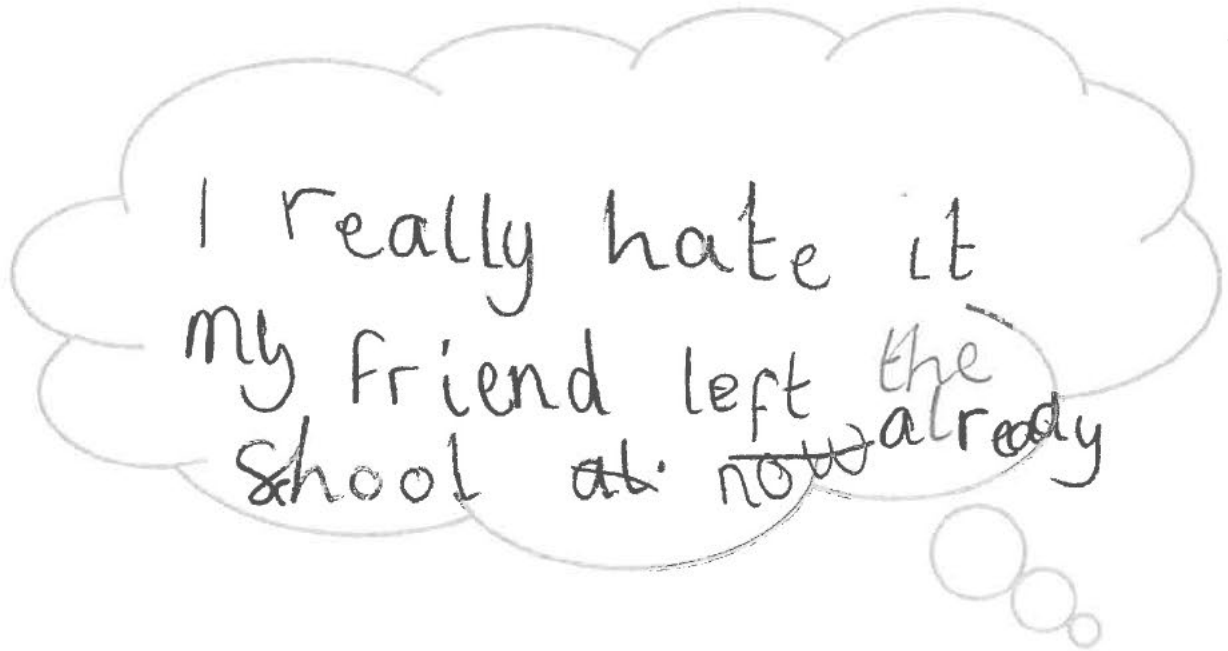 I really hate it
my friend left the
school at now already